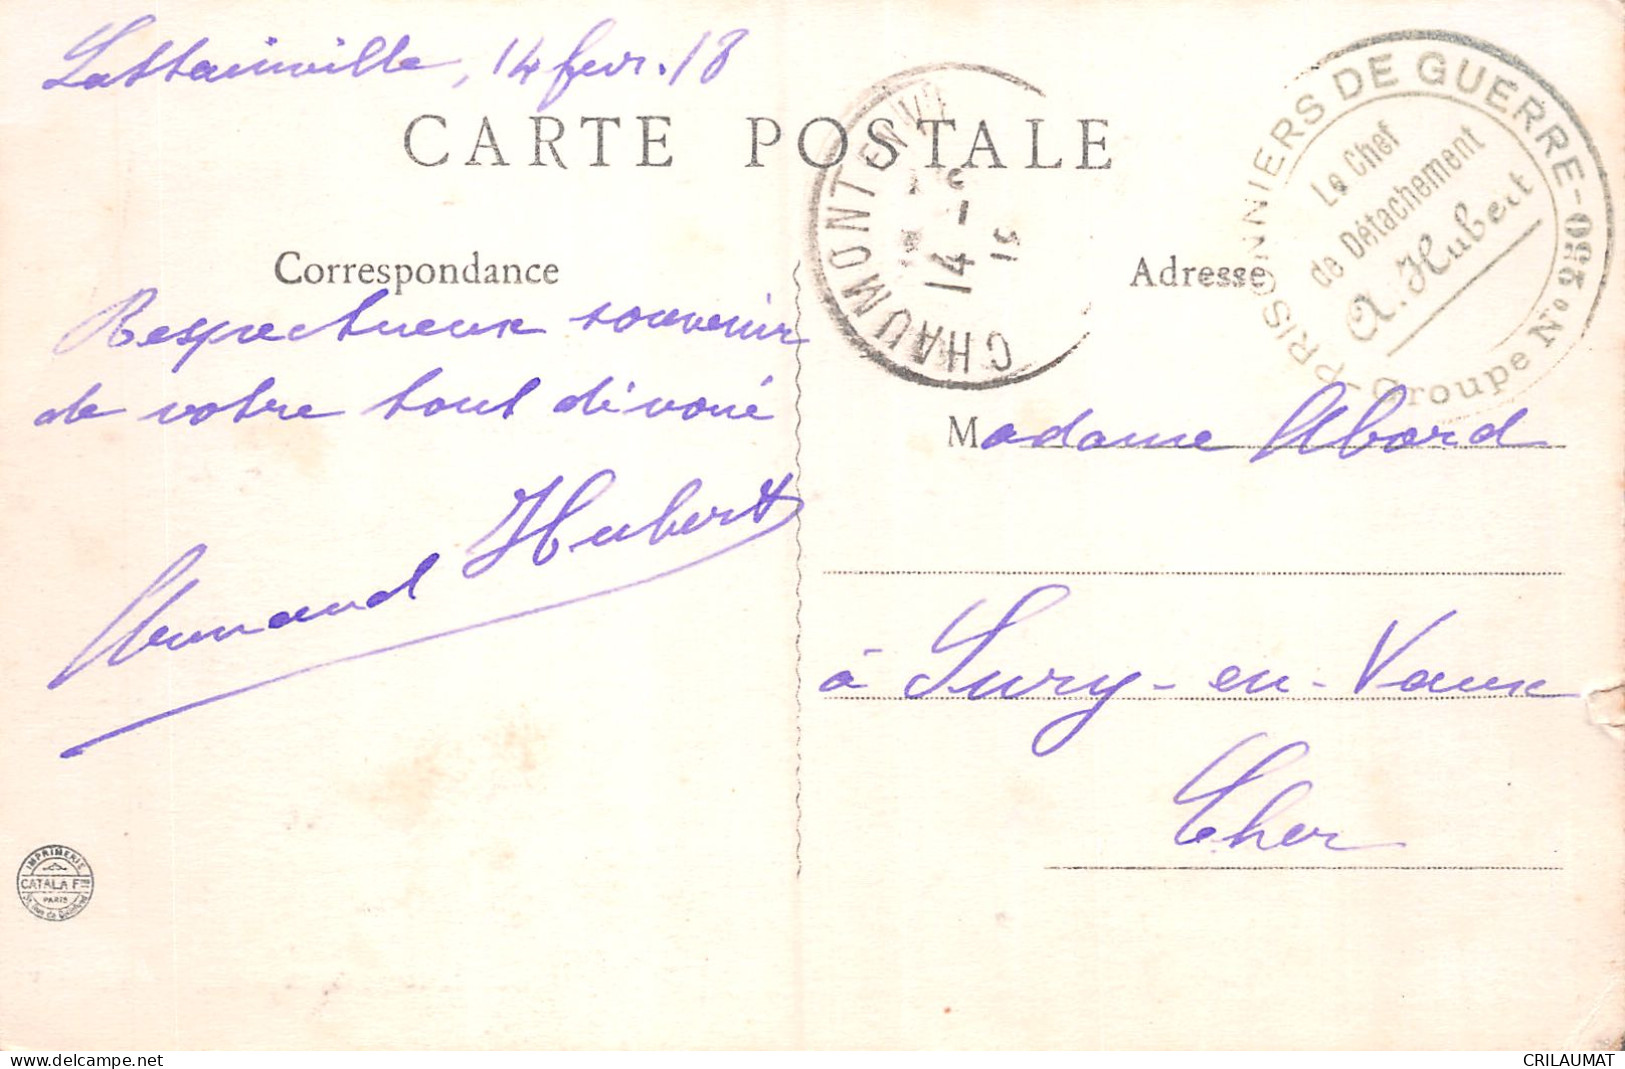 Lattainville, 14 fevr. 18
CARTE POSTALE
Correspondance
Respectueux souvenir
de votre tout dévoué
Armand Hubert
CHAUMONT EN VEXIN
14 - 2
18
PRISONNIERS DE GUERRE - 093
Le Chef
de Détachement
A. Hubert
Groupe No
Adresse
Madame Abord
à Sury-en-Vaux
Cher
IMPRIMERIE
CATALA Fres
PARIS
delcampe.net
CRILAUMAT